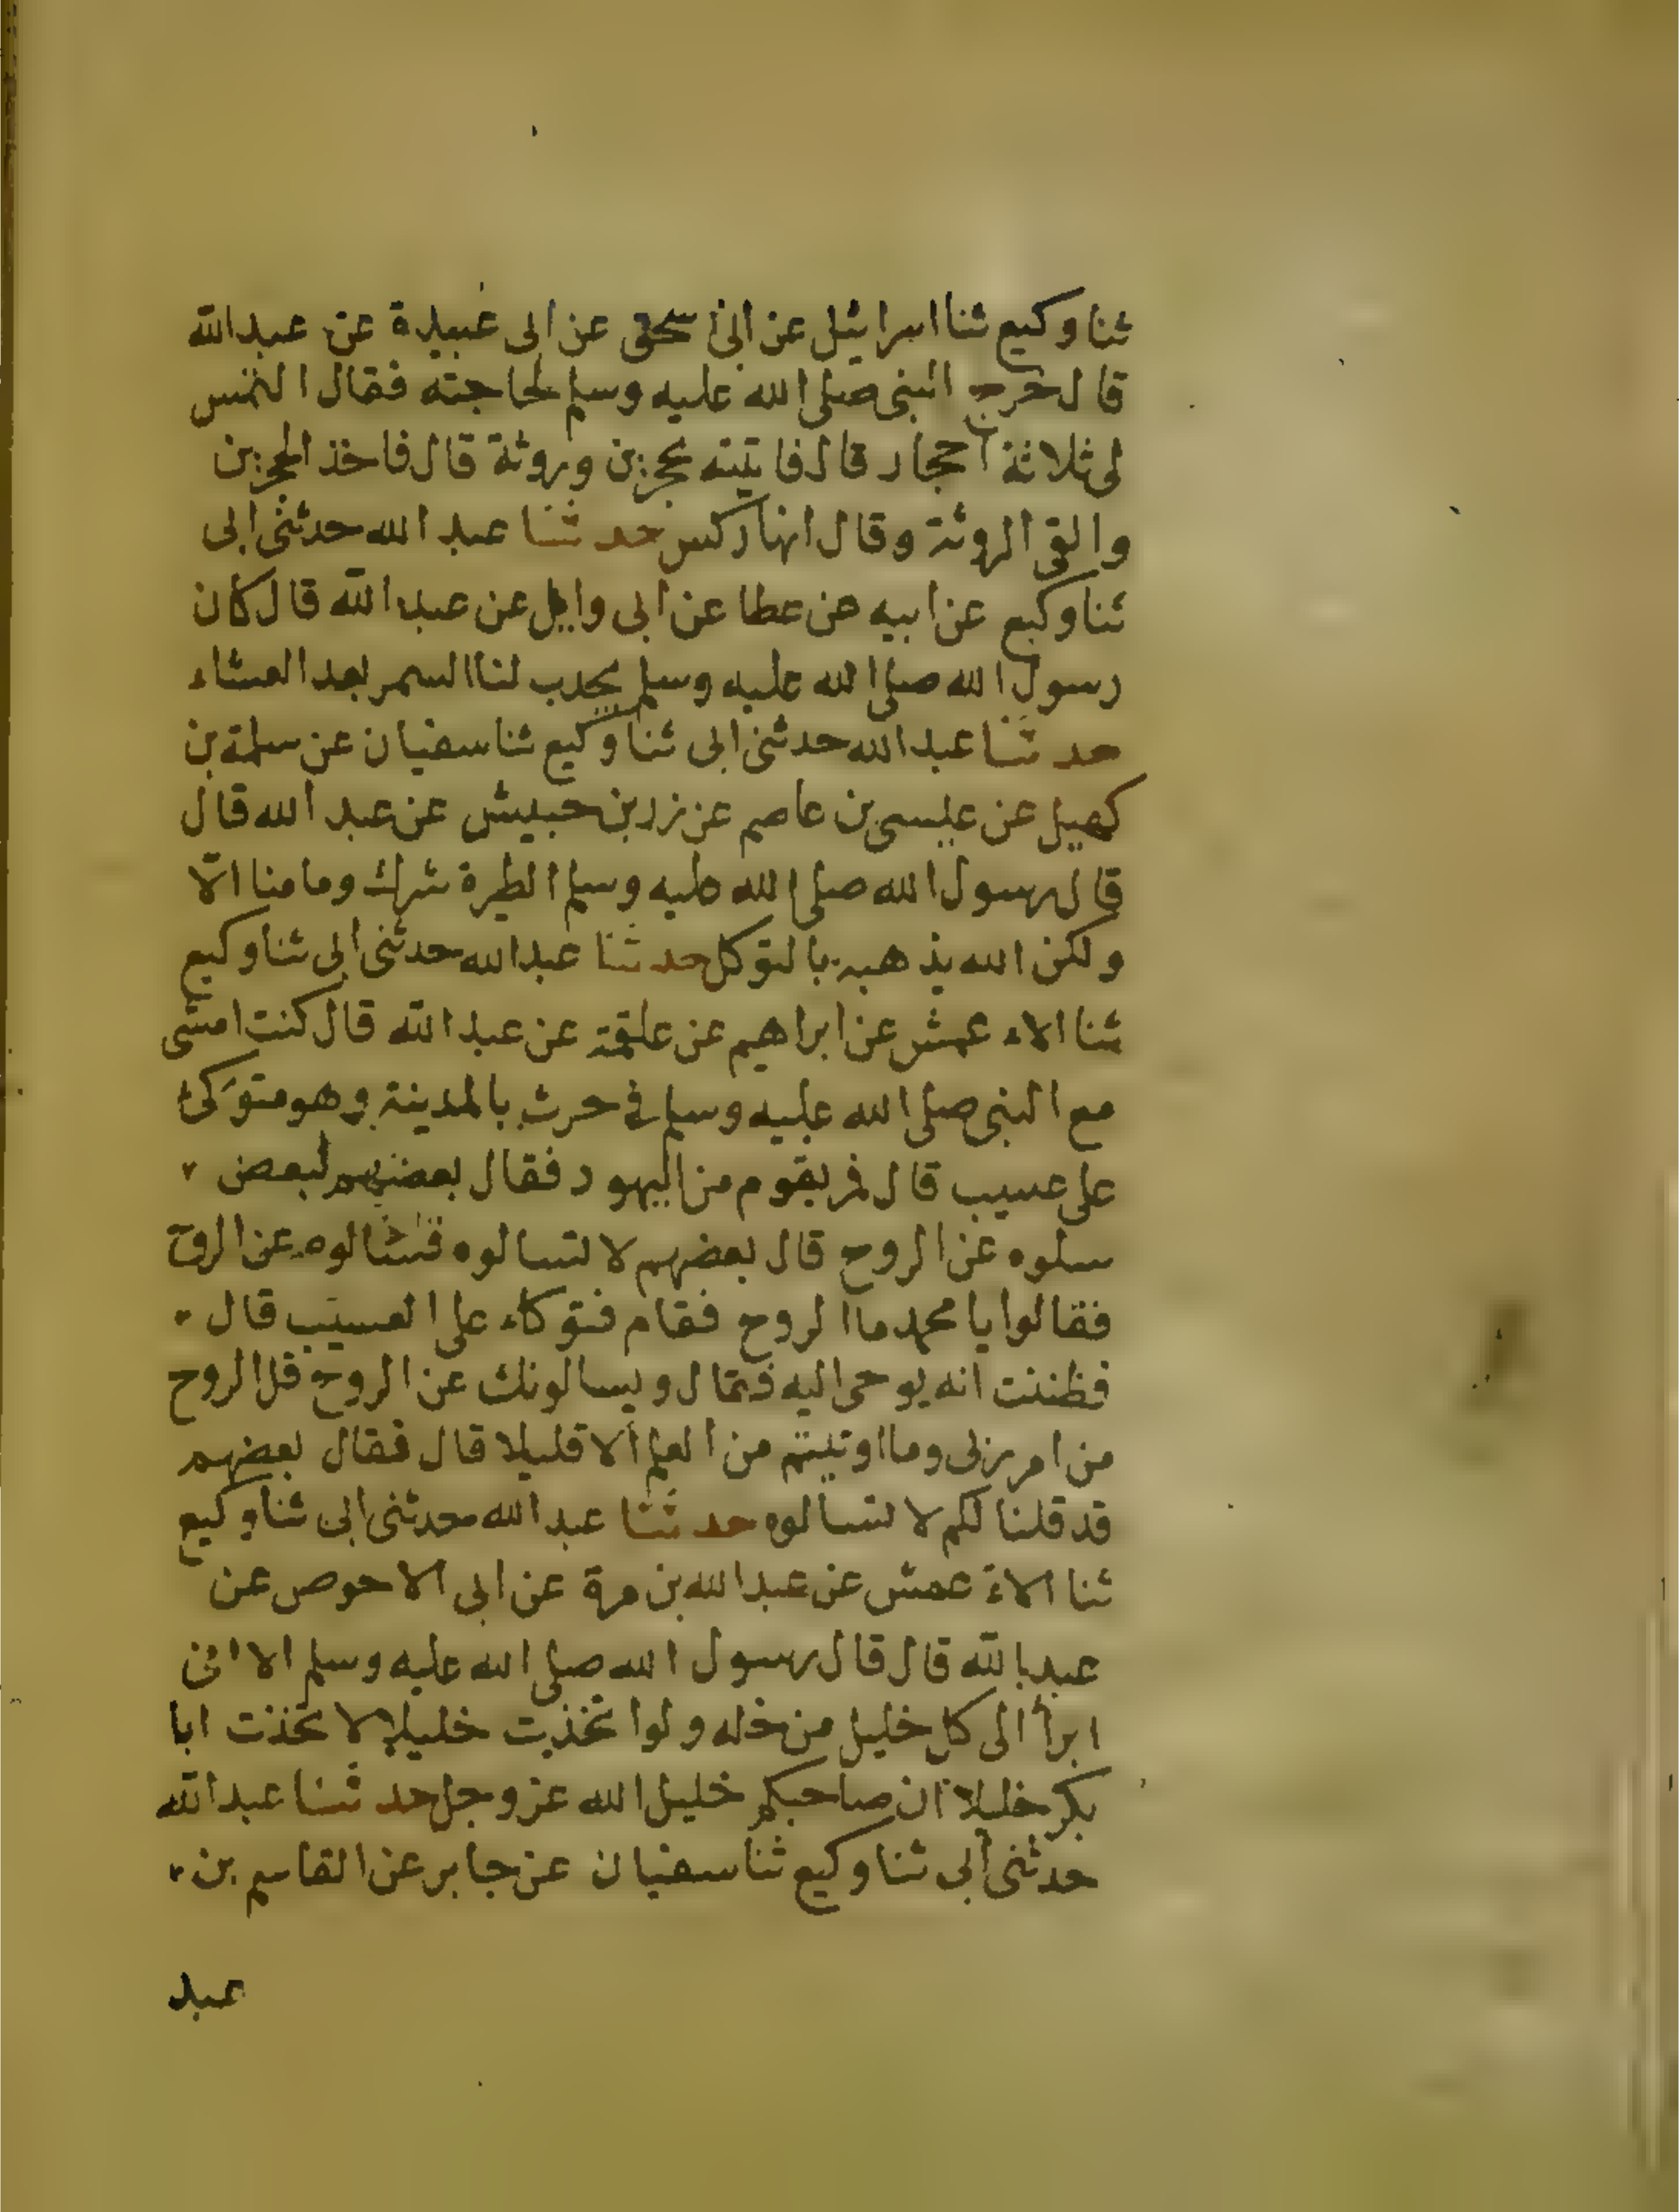 ثنا وكيع ثنا اسرائيل عن ابى اسحق عن ابى عبيدة عن عبد الله
قال خرج النبى صلى الله عليه وسلم لحاجته فقال التمس
لى ثلاثة احجار قال فاتيته بحجرين وروثة قال فاخذ الحجرين
والقى الروثة وقال انها ركس حدثنا عبد الله حدثنى ابى
ثنا وكيع عن ابيه عن عطا عن ابى وايل عن عبد الله قال كان
رسول الله صلى الله عليه وسلم يجدب لنا السمر بعد العشاء
حدثنا عبد الله حدثنى ابى ثنا وكيع ثنا سفيان عن سلمة بن
كهيل عن عيسى بن عاصم عن زر بن حبيش عن عبد الله قال
قال رسول الله صلى الله عليه وسلم الطيرة شرك وما منا الا
ولكن الله يذهبه بالتوكل حدثنا عبد الله حدثنى ابى ثنا وكيع
ثنا الاعمش عن ابراهيم عن علقمة عن عبد الله قال كنت امشى
مع النبى صلى الله عليه وسلم فى حرث بالمدينة وهو متوكئ
على عسيب قال فمر بقوم من اليهود فقال بعضهم لبعض
سلوه عن الروح قال بعضهم لا تسالوه فسالوه عن الروح
فقالوا يا محمد ما الروح فقام فتوكاء على العسيب قال
فظننت انه يوحى اليه فقال ويسالونك عن الروح قل الروح
من امر ربى وما اوتيتم من العلم الا قليلا قال فقال بعضهم
قد قلنا لكم لا تسالوه حدثنا عبد الله حدثنى ابى ثنا وكيع
ثنا الاعمش عن عبد الله بن مرة عن ابى الاحوص عن
عبد الله قال قال رسول الله صلى الله عليه وسلم الا انى
ابرأ الى كل خليل من خله ولو اتخذت خليلا لاتخذت ابا
بكر خليلا ان صاحبكم خليل الله عز وجل حدثنا عبد الله
حدثنى ابى ثنا وكيع ثنا سفيان عن جابر عن القاسم بن
عبد